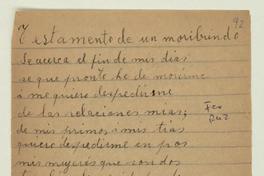 92
Testamento de un moribundo
Se acerca el fin de mis dias
se que pronto he de morirme
a me quiero despedirme
de las relaciones mias;
de mis primos a mis tias
quiero despedirme en pos
mis mujeres que